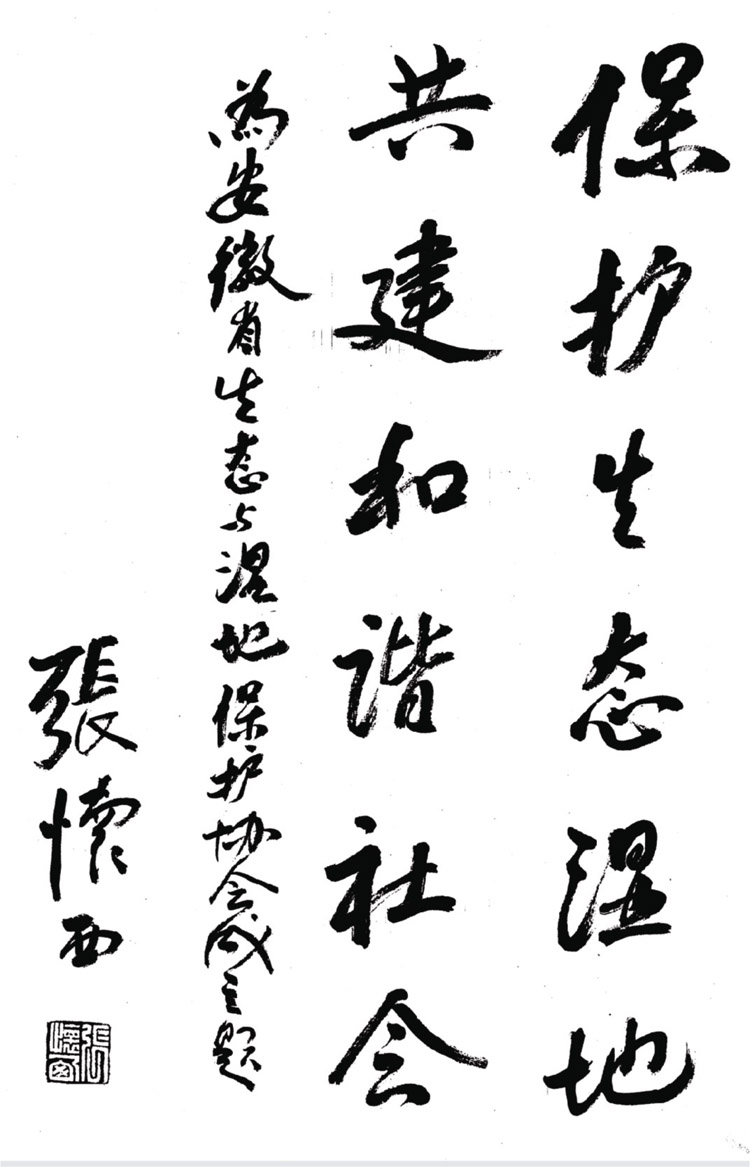 保护生态湿地
共建和谐社会
为安徽省生态与湿地保护协会成立题
張懷西
張懷西